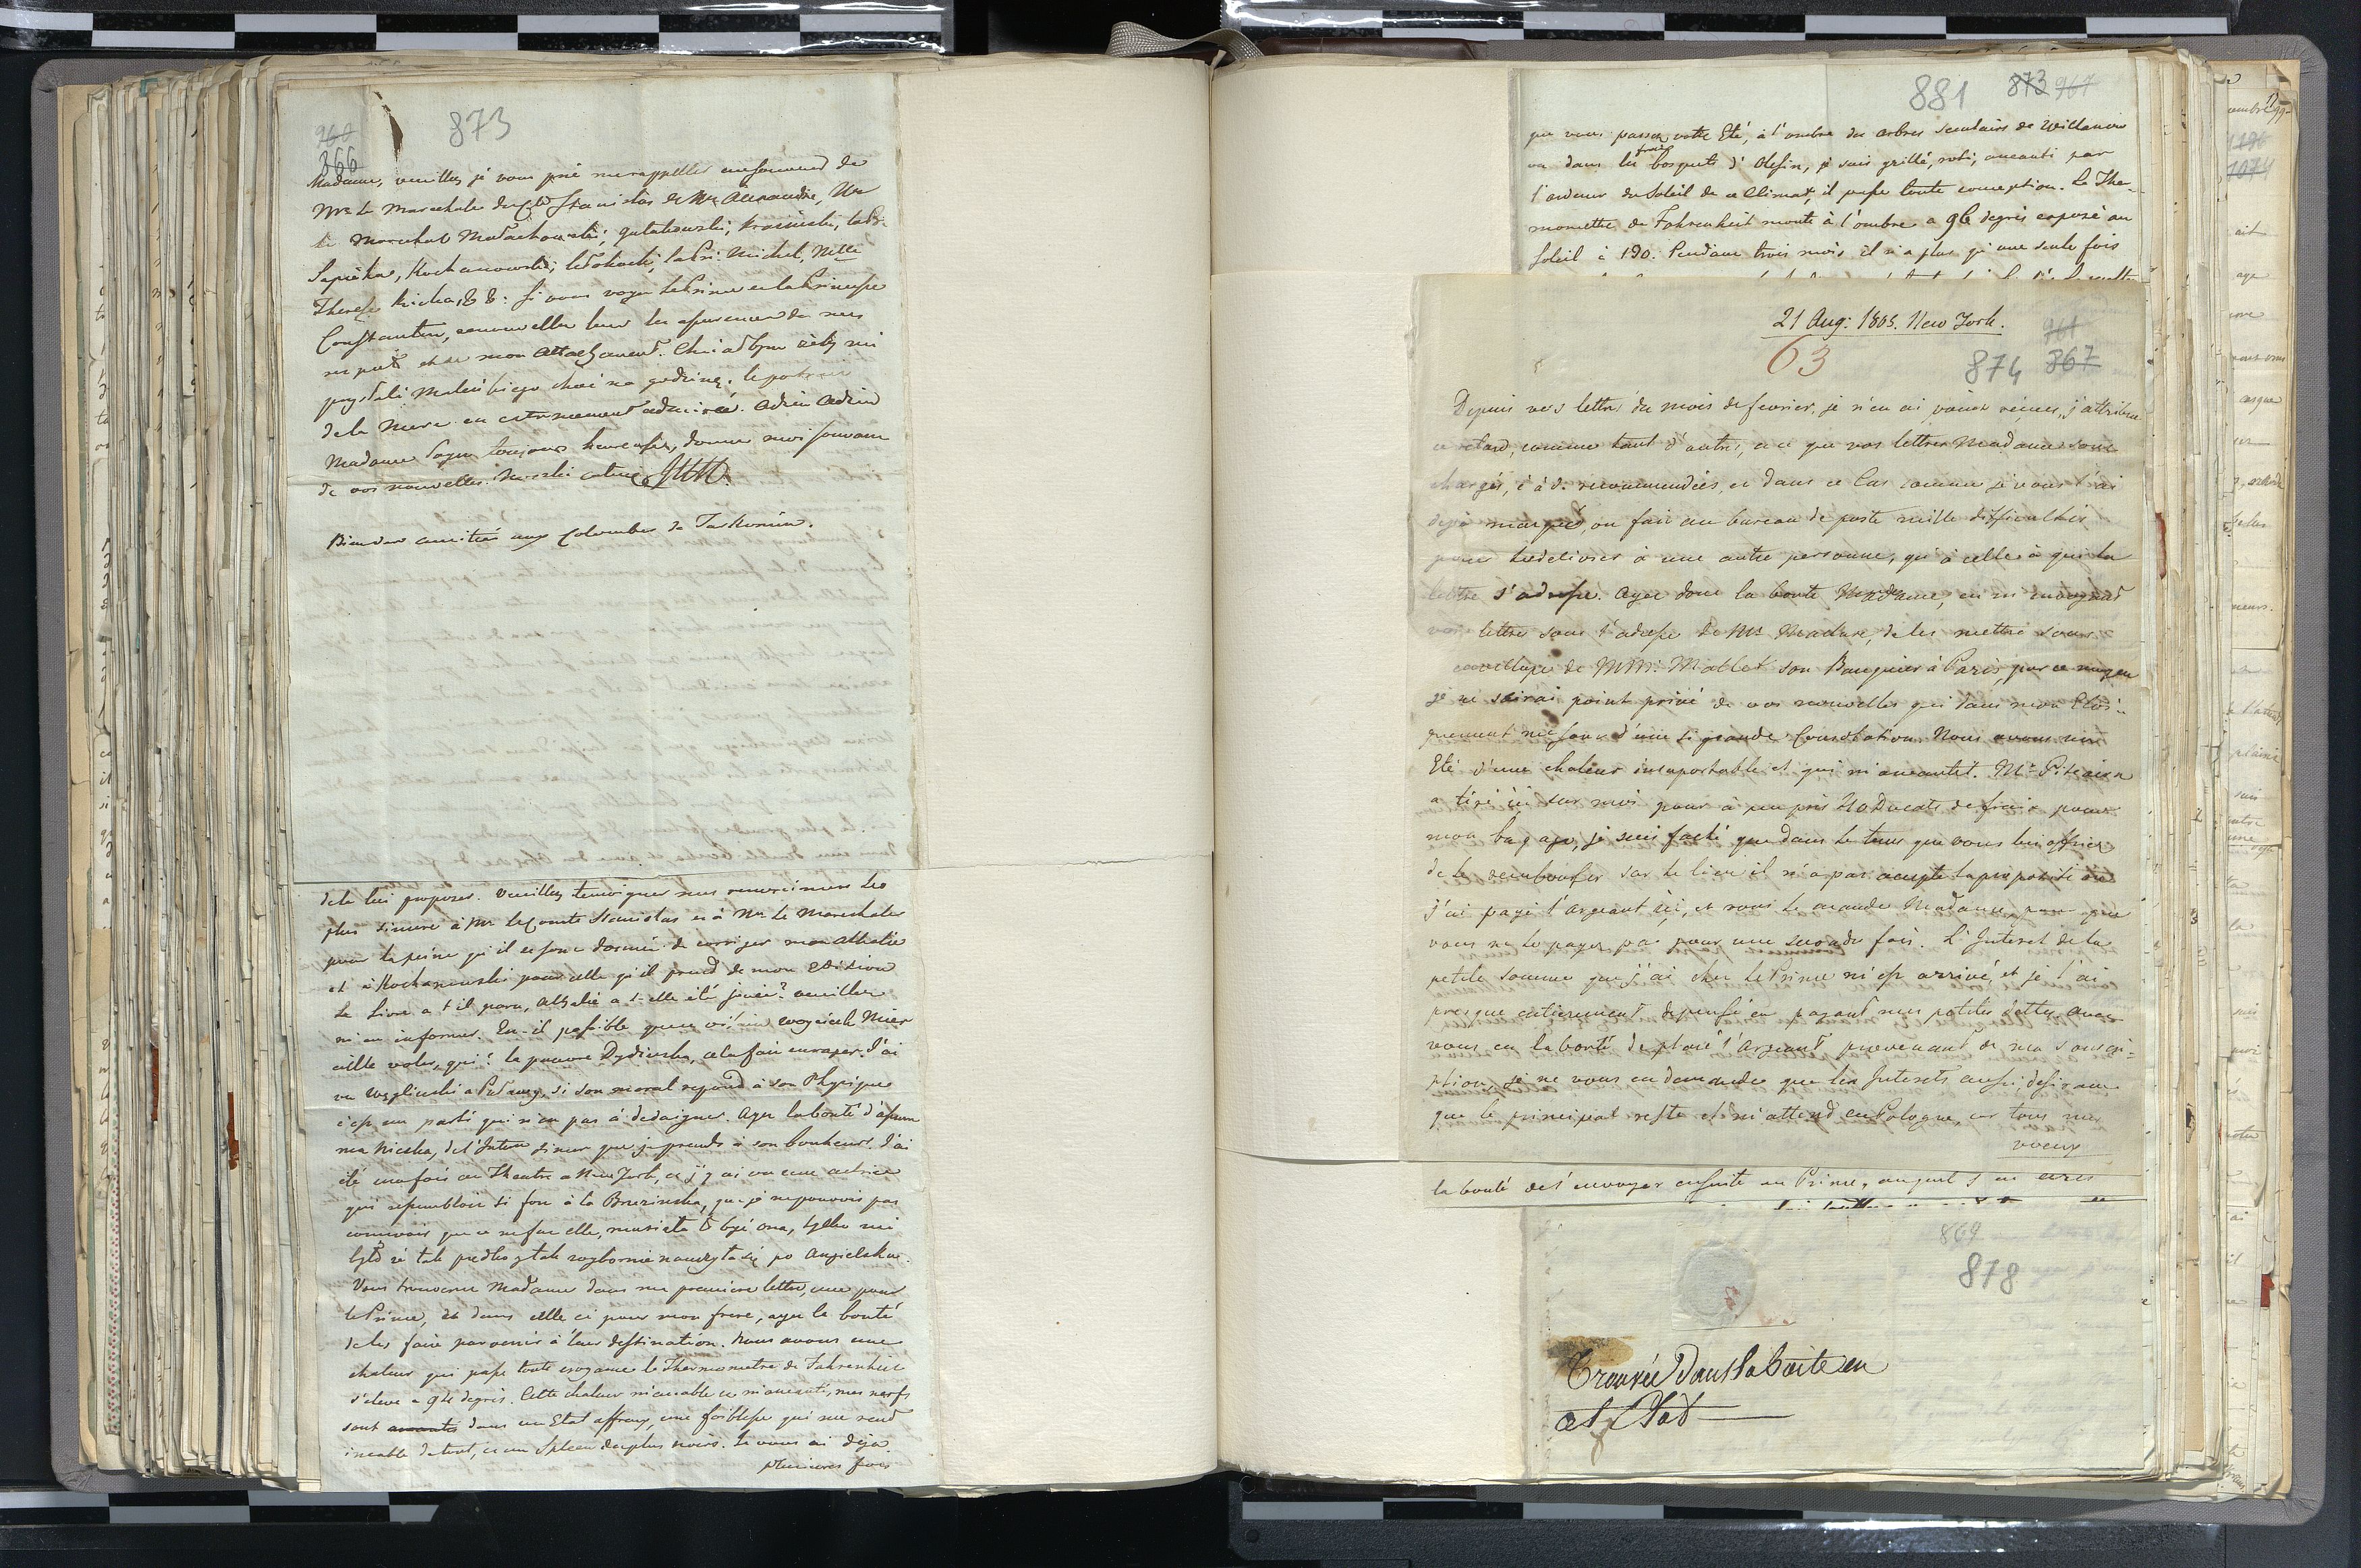 960
866
873
Madame, veuillez je vous prie me rappeller au souvenir de
Mme la Marechale du Cte Stanislas et Mr Alexandre, Mr
le Marechal Małachowski, Gutakowski, Krasinski, la Pr:
Sapieha, Kochanowski, le Potocki, la Pri: Michel, Melle
Therese Kicka, & &: Si vous voyez le Prince et la Princesse
Constantin, renouvellez leur les assurances de mes
respects et de mon attachement. Chciałbym żeby mi
przysłali Maleńkiego choć na godzinę. le portrait
de la Mere en extremement admirée. Adieu Adieu
Madame Soyez toujours heureuse, donnez moi souvent
de vos nouvelles. Nozski całuię JUN.
Bien des amitiés aux Colombes de Tarkomin.
de la lui proposer. Veuillez temoigner mes remercimens les
plus sinceres à Mr le Comte Stanislas et à Mr le Marechal
pour la peine qu'il se sont donnée de corriger mon Athalie
et à Kochanowski pour celle qu'il prend de mon Edition
Le Livre a t'il paru, Athalie a t-elle été jouée? veuillez
m'en informer. Est-il possible que ce vilain Woyciech Mier
aille voler, qui? la pauvre Dydinska, cela fait enrager. J'ai
vu Węgliński a Puławy, si son moral repond à son Physique
c'est un parti qui n'est pas à dedaigner. Ayez la bonté d'assurer
ma Niecka, de l'Interet sincer que je prends à son bonheur. J'ai
été une fois au Theatre a New York, et j'y ai vu une actrice
qui ressembloit si fort à la Brzezinska, que je ne pouvois pas
concevoir que ce ne fut elle, musiała to być ona, tylko mi
byłó że tak prędko y tak wybornie nauczyła się po Angielsku.
Vous trouverez Madame dans ma premiere lettre, une pour
le Prince, et dans celle ci pour mon frere, ayez la bonté
de les faire parvenir à leur destination. Nous avons une
chaleur qui passe toute croyance le Thermometre de Fahrenheit
s'eleve a 94 degrés. Cette chaleur m'accable et m'aneanti, mes nerfs
sont dans un Etat affreux, une foiblesse qui me rend
incable de tout, et un Spleen des plus noirs. Je vous ai deja
plusieurs fois
881 873 967
que vous passez votre Eté, à l'ombre des arbres seculaires de Willanow
ou dans les frais bosquets d'Olesin, je suis grillé, roti, aneanti par
l'ardeur du Soleil de ce Climat, il passe toute conception. Le Ther-
mometre de Fahrenheit monte à l'ombre a 96 degrés exposé au
Soleil à 190. Pendant trois mois il n'a plus qu'une seule fois
21 Aug: 1805. New York.
961
63
874 867
Depuis vos lettres du mois de fevrier, je n'en ai point reçues, j'attribue
ce retard, comme tant d'autres, a ce que vos lettres Madame sont
chargés, c'à d: recommendées, et dans ce Cas comme je vous l'ai
dejà marqué, on fait au bureau de poste mille difficultés
pour les delivrer à une autre personne, qu'à celle à qui la
lettre s'adresse. Ayez donc la bonté Madame, en m'envoyant
vos lettres sous l'adresse de Mr Maclure, de les mettre sous
envellope de MMrs Mallet son Banquier à Paris, par ce moyen
je ne serai point privé de vos nouvelles qui dans mon Eloi-
gnement me sont d'une si grande Consolation. Nous avons un
Eté d'une chaleur insuportable et qui m'aneantit. Mr Pitcairn
a tiré ici sur moi pour à peu près 40 Ducats de fraix pour
mon bagage, je suis faché que dans le tems que vous lui offriez
de le rembourser sur le lieu il n'a pas accepté la proposition
j'ai payé l'argeant ici, et vous le mande Madame, pour que
vous ne le payez pas pour une seconde fois. L'Interet de la
petite somme que j'ai chez le Prince m'est arrivé, et je l'ai
presque entierement depensé en payant mes petites dettes. Avez
vous eu la bonté de placé l'argeant provenant de ma souscri-
ption, je ne vous en demande que les Interets aussi, desirant
que le principal reste et m'attend en Pologne, car tous mes
voeux
la bonté de l'envoyer ensuite au Prince, auquel j'en ecris
869
878
Trouvée dans la boite en
cet Etat